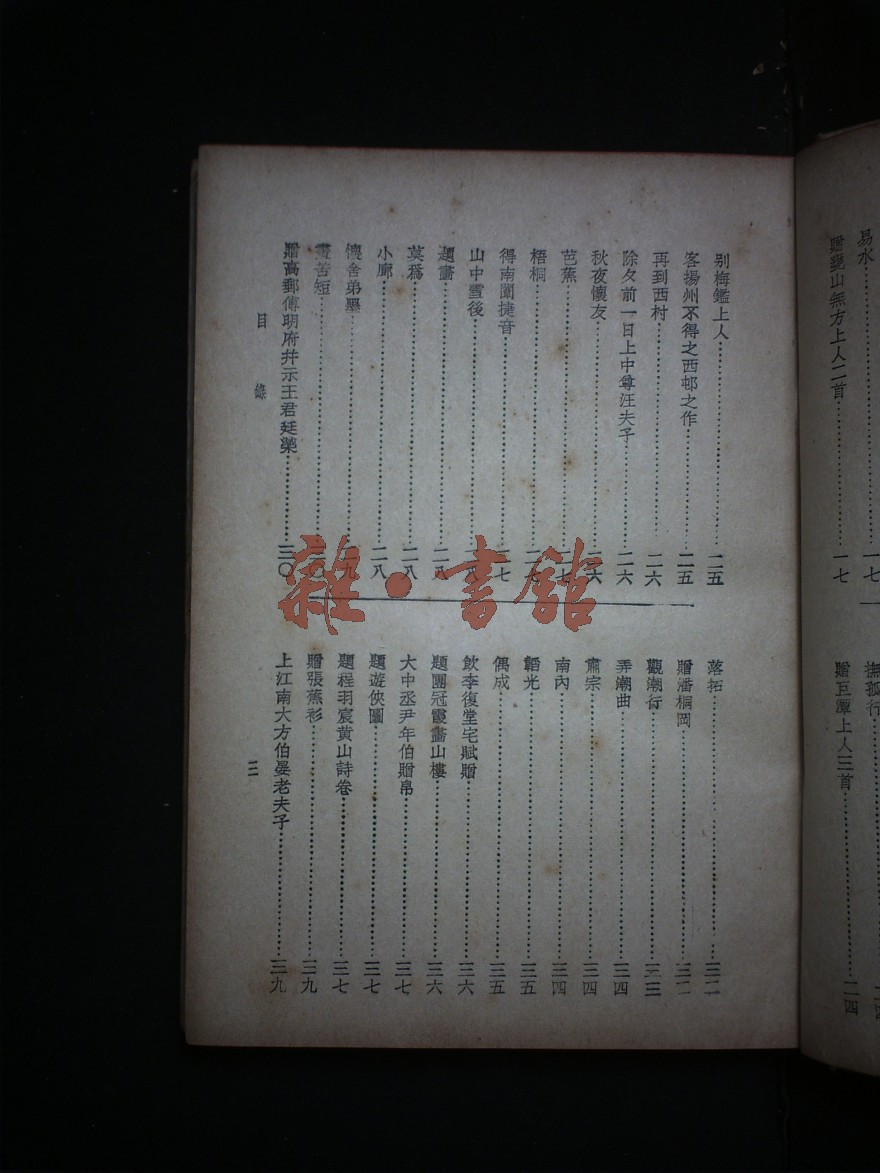 易水
贈甕山無方上人二首……一七
撫孤行
贈巨潭上人三首……二四
别梅鑑上人……二五
客揚州不得之西邨之作……二五
再到西村……二六
除夕前一日上中尊汪夫子……二六
秋夜懷友……二六
芭蕉……二七
梧桐……二七
得南闈捷音……二七
山中雪後……二八
題畫……二八
莫爲……二八
小廊……二八
懷舍弟墨……二九
晝苦短……三〇
贈高郵傅明府并示王君廷𣚴……三〇
落拓……三二
贈潘桐岡……三二
觀潮行……三三
弄潮曲……三四
肅宗……三四
南內……三四
韜光……三五
偶成……三五
飲李復堂宅賦贈……三六
題團冠霞畵山樓……三六
大中丞尹年伯贈帛……三七
題遊俠圖……三七
題程羽宸黄山詩卷……三七
贈張蕉衫……三九
上江南大方伯晏老夫子……三九
目錄
三
雜·書館